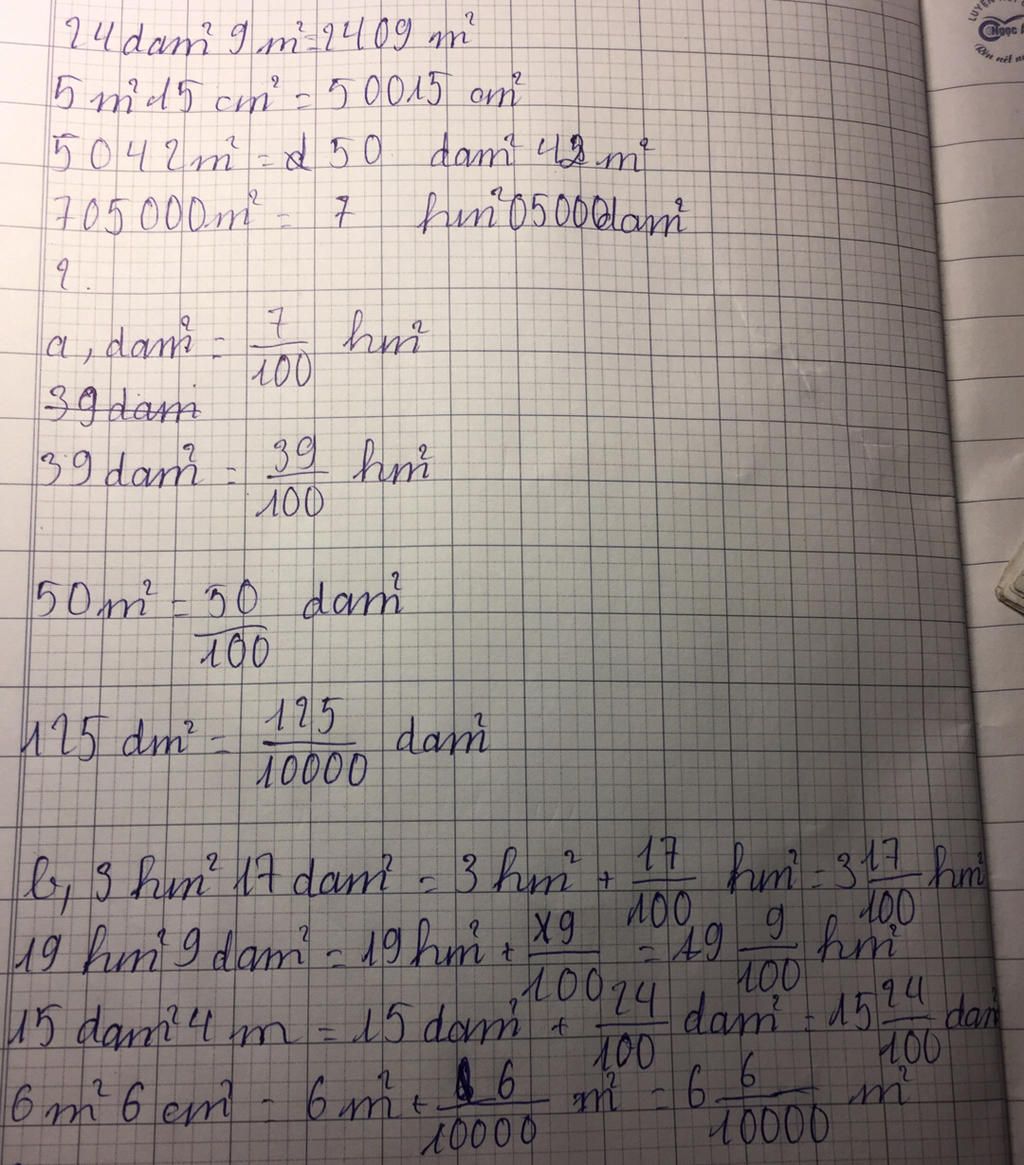 24dam² 9 m² = 2409 m²
5 m² 15 cm² = 50015 cm²
5042m² = 50 dam² 42 m²
705000m² = 7 hm² 05000dam²
2.
a, dam² = 7/100 hm²
39dam
39dam² = 39/100 hm²
50m² = 50/100 dam²
125 dm² = 125/10000 dam²
b, 3 hm² 17 dam² = 3 hm² + 17/100 hm² = 3 17/100 hm²
19 hm² 9 dam² = 19 hm² + 9/100 = 19 9/100 hm²
15 dam² 4 m = 15 dam² + 24/100 dam² = 15 24/100 dam
6 m² 6 cm² = 6 m² + 6/10000 m² = 6 6/10000 m²
Ngọc